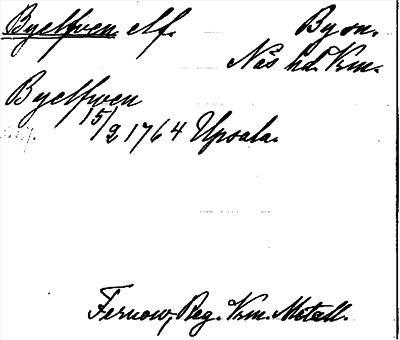 Byelfven. Af. By sn.
Näs hd. Vrm.
Byelfwen
15/2 1764 Upsala.
Fernow, Reg. Vrm. Metall.